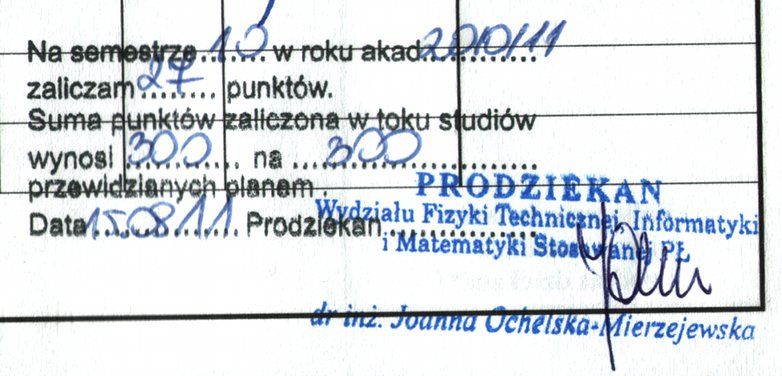 Na semestrze 10 w roku akad. 2010/11
zaliczam 27 punktów.
Suma punktów zaliczona w toku studiów
wynosi 300 na 300
przewidzianych planem.
Data 15.08.11 Prodziekan
PRODZIEKAN
Wydziału Fizyki Technicznej, Informatyki
i Matematyki Stosowanej PŁ
dr inż. Joanna Ochelska-Mierzejewska